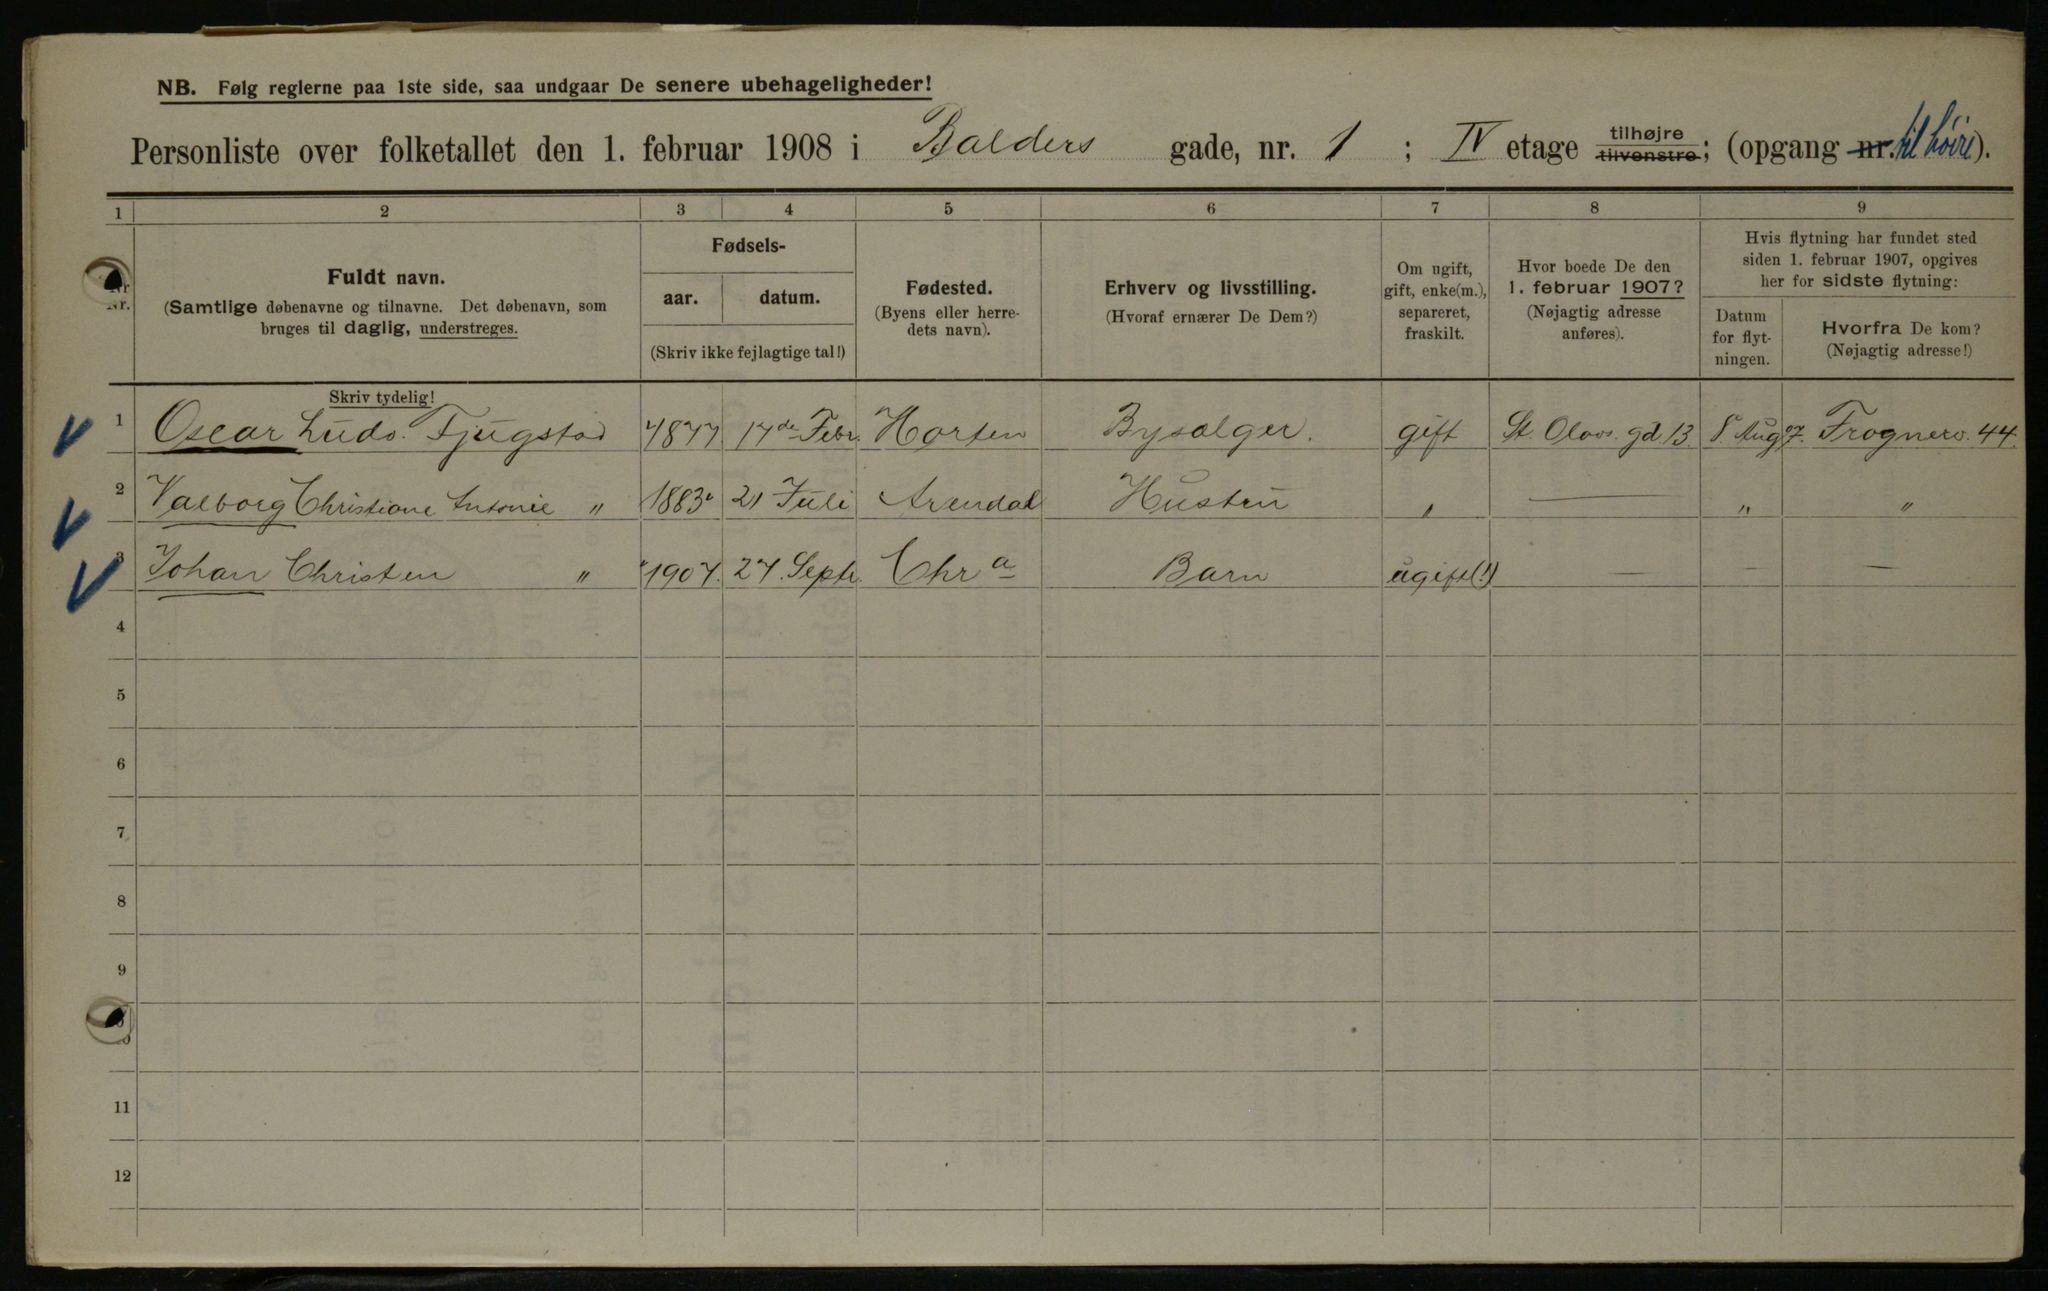 NB. Følg reglerne paa 1ste side, saa undgaar De senere ubehageligheder!
Personliste over folketallet den 1. februar 1908 i Balders gade, nr. 1 ; IV etage tilhøjre tilvenstre; (opgang nr. til høire).
1 2 3 4 5 6 7 8 9
Nr.
Fuldt navn.
(Samtlige døbenavne og tilnavne. Det døbenavn, som
bruges til daglig, understreges.
Fødsels-
aar. datum.
(Skriv ikke fejlagtige tal!)
Fødested.
(Byens eller herre-
dets navn).
Erhverv og livsstilling.
(Hvoraf ernærer De Dem?)
Om ugift,
gift, enke(m.),
separeret,
fraskilt.
Hvor boede De den
1. februar 1907?
(Nøjagtig adresse
anføres).
Hvis flytning har fundet sted
siden 1. februar 1907, opgives
her for sidste flytning:
Datum
for flyt-
ningen.
Hvorfra De kom?
(Nøjagtig adresse!)
Skriv tydelig!
1 Oscar Ludv. Fjugstad 1877 17de Febr. Horten Bysælger. gift St. Olavs gd 13. 8 Aug 07. Frognerv. 44.
2 Valborg Christiane Antonie " 1883 21 Juli Arendal Hustru " — " "
3 Johan Christen " 1907. 27. Septr. Chra Barn ugift(!) — — —
4
5
6
7
8
9
10
11
12